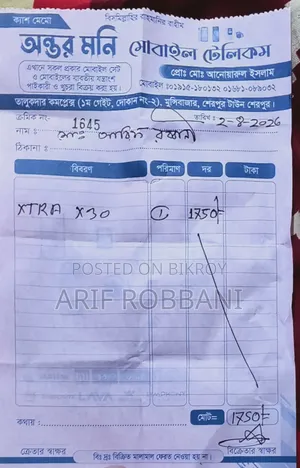 ক্যাশ মেমো
বিসমিল্লাহির রাহমানির রাহীম
অন্তর মনি মোবাইল টেলিকম
এখানে সকল প্রকার মোবাইল সেট
ও মোবাইলের যাবতীয় যন্ত্রাংশ
পাইকারী ও খুচরা বিক্রয় করা হয়।
প্রোঃ মোঃ আনোয়ারুল ইসলাম
মোবাইল: ০১৯১৫-১৮০১৩২ ০১৬৮১-০৮৯০৩২
তালুকদার কমপ্লেক্স (১ম গেইট, দোকান নং-২), মুন্সিবাজার, শেরপুর টাউন শেরপুর।
ক্রমিক নং- 1645
তারিখ: 2-8-2026
নাম : মোঃ আরিফ রব্বানী
ঠিকানা :
বিবরণ পরিমাণ দর টাকা
XTRA X30 1 1750/=
POSTED ON BIKROY
ARIF ROBBANI
মোট= 1750/=
কথায় :
ক্রেতার স্বাক্ষর বিক্রেতার স্বাক্ষর
বিঃ দ্রঃ বিক্রিত মালামাল ফেরত নেওয়া হয় না।